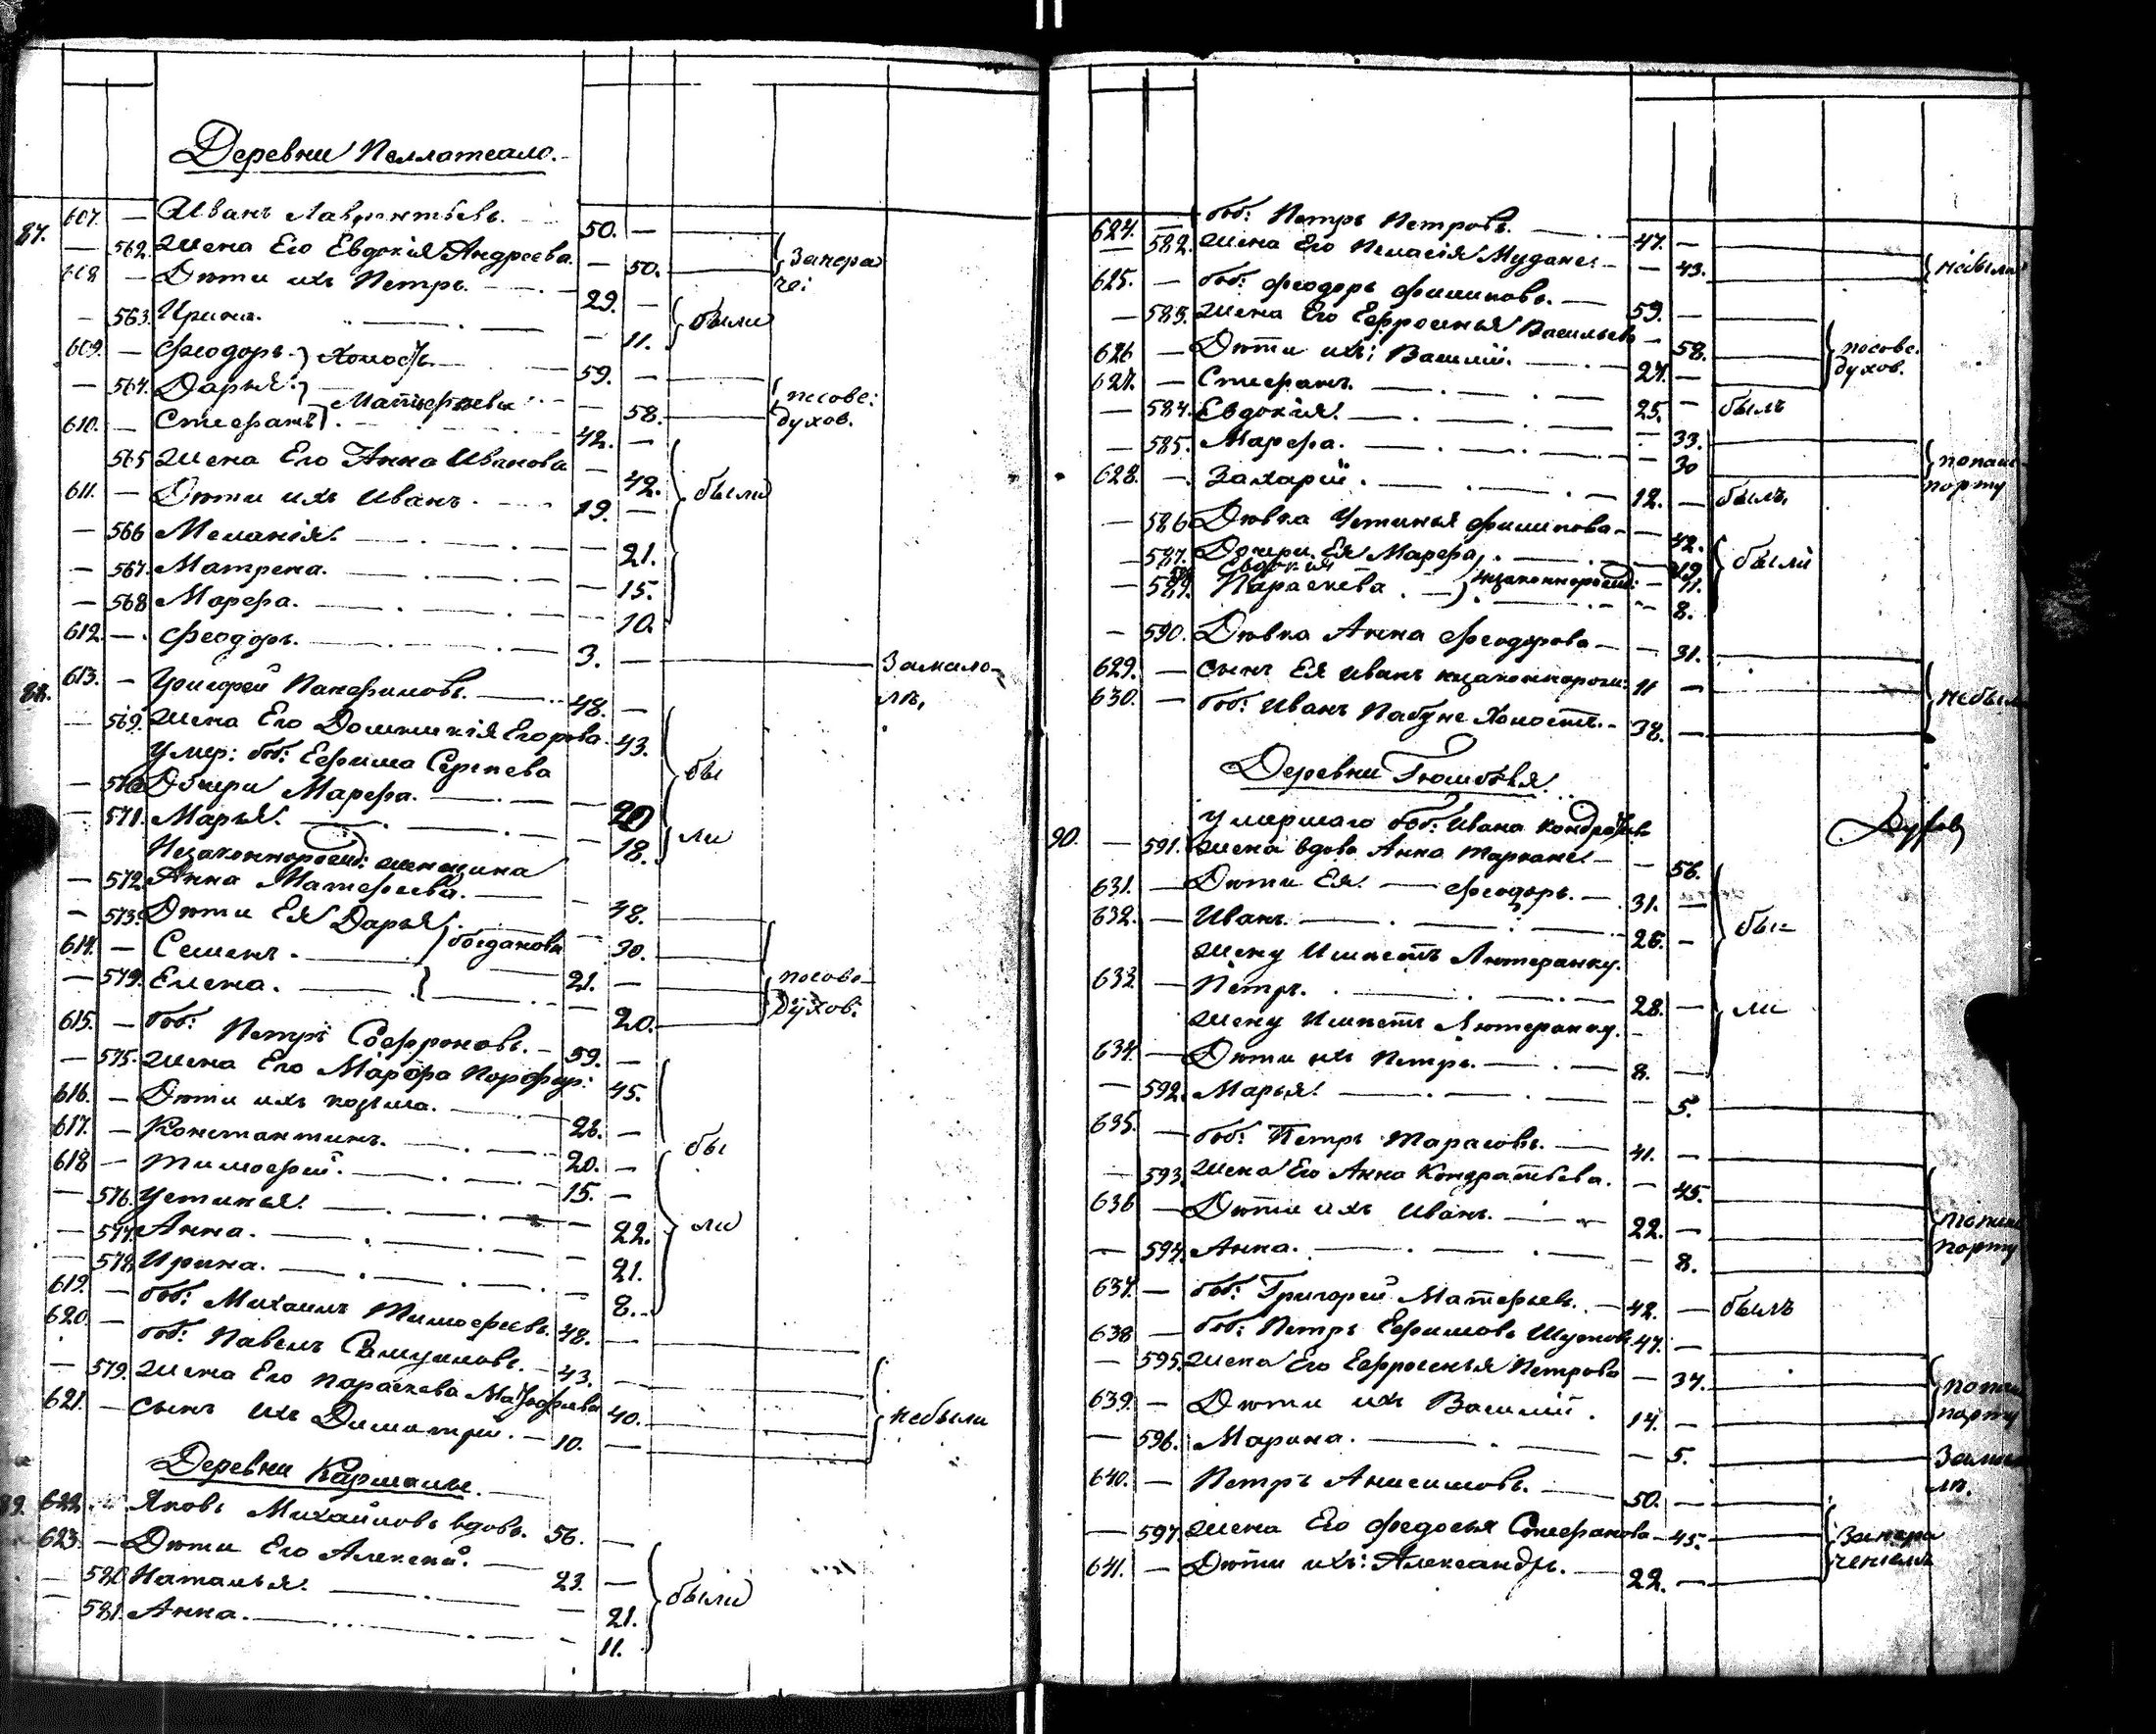 Деревни Пеллатсало.
87. 607. — Иванъ Лаврентьевъ. 50. —
— 562. Жена Его Евдокія Андреева. — 50.
608 — Дѣти ихъ Петръ. 29. —
— 563. Ирина. — 11. были
609. — Феодоръ. Холостъ 59. —
— 564. Дарья. Матфѣевы — 58. посовѣ: духов.
610. — Стефанъ 42. —
565 Жена Его Анна Иванова — 42. были
611. — Дѣти ихъ Иванъ. 19. —
— 566 Меланія. — 21.
— 567. Матрена. — 15.
— 568 Марфа. — 10.
612. — Феодоръ. 3. — Замало-
лѣ,
88. 613. — Григорей Панфиловъ. 48. —
— 569. Жена Его Домникія Егорова. 43.
Умер: боб: Ефима Сергеева бы
— 570 Дочери Марфа. — 20
— 571. Марья. — 18. ли
Незаконнорожд: женщина
— 572. Анна Матфеева. — 48.
— 573. Дѣти Ея Дарья. 30.
614. — Семенъ. Богдановы 21. —
— 574. Елена. — 20. посовѣ духов:
615. — боб: Петръ Софроновъ. 59. —
— 575. Жена Его Марфа Порфир: 45.
616. — Дѣти ихъ козьма. 26. —
617. — Константинъ. 20. — бы
618 — Тимофей. 15. —
— 576. Устинья. — 22. ли
— 577. Анна. — 21.
— 578. Ирина. — 8.
619. — боб: Михаилъ Тимофеевъ. 48. —
620. — боб: Павелъ Самуиловъ. 43.
— 579. Жена Его Параскева 40. небыли
621. — Сынъ ихъ Димитрій. 10. —
Деревни
89. 622. Яковъ Михайловъ вдовъ. 56. —
623. — Дѣти Его Алексей. 23. —
— 580. Наталья. — 21. были
— 581. Анна. — 11.
624. — боб: Петръ Петровъ. 47. —
— 582. Жена Его Пелагія — 43. небыли
625. — боб: Феодоръ Филиповъ. 59. —
— 583. Жена Его Ефросинья Васильева — 58. посовѣ. духов.
626 — Дѣти ихъ: Василій. 27. —
627. — Стефанъ. 25. — былъ
— 584. Евдокія. 33.
— 585. Марфа. — 30 попаш-
порту
628. — Захарій. 12. — былъ,
— 586 Дѣвка Устинья Филипова — 42.
— 587. Дочери Ея Марфа, — 19 были
Евдокия незаконнорожд: — 11.
— 589. Параскева. — 8.
— 590. Дѣвка Анна Феодорова — 31.
629. — Сынъ Ея Иванъ незаконнорож: 11 —
630. — боб: Иванъ Холостъ. 38. — небыли
Деревни
90. Умершаго боб: Ивана Кондратьева
— 591. Жена вдова Анна — 56.
631. — Дѣти Ея. Феодоръ. 31. —
632. — Иванъ. 26. — бы-
Жену Имѣетъ Лютеранку.
633. — Петръ. 28. — ли
Жену Имѣетъ Лютеранку.
634. — Дѣти ихъ Петръ. 8. —
— 592. Марья. — 5.
635. — боб: Петръ Тарасовъ. 41. —
— 593. Жена Его Анна Кондратьева. — 45.
636 — Дѣти ихъ Иванъ. 22. — порту
— 594. Анна. — 8.
637. — боб: Григорей Матфѣевъ. 42. — былъ
638 — боб: Петръ Ефимовъ 47. —
— 595. Жена Его Ефросинья Петрова — 34.
639. — Дѣти ихъ Василій. 14. — порту
— 596. Марина. — 5.
640. — Петръ Анисимовъ. 50. —
— 597. Жена Его Федосья Стефанова — 45.
641. — Дѣти ихъ: Александръ. 22. —